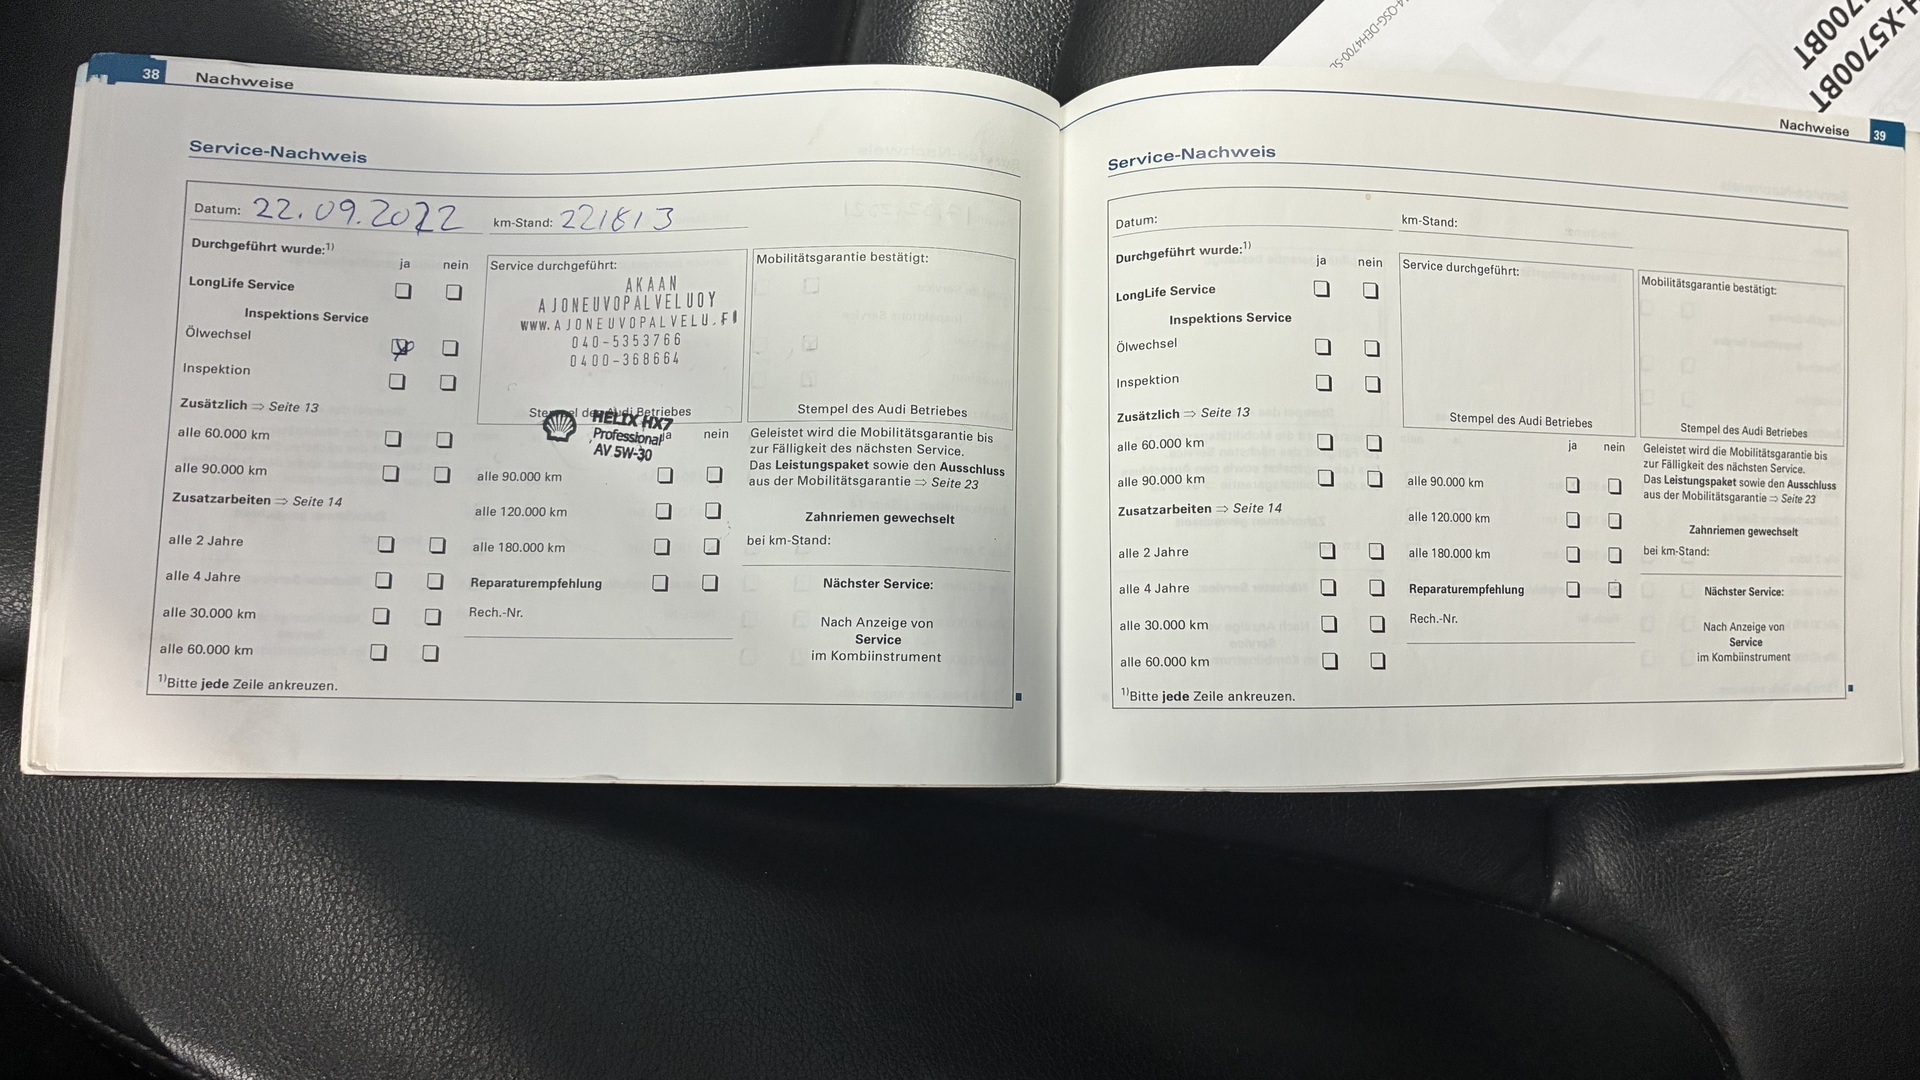 38 Nachweise
Service-Nachweis
Datum: 22.09.2022 km-Stand: 221813
Durchgeführt wurde:1)
ja nein
LongLife Service
Inspektions Service
Ölwechsel
Inspektion
Zusätzlich ⇒ Seite 13
alle 60.000 km
alle 90.000 km
Zusatzarbeiten ⇒ Seite 14
alle 2 Jahre
alle 4 Jahre
alle 30.000 km
alle 60.000 km
1)Bitte jede Zeile ankreuzen.
Service durchgeführt:
AKAAN
AJONEUVOPALVELUOY
WWW.AJONEUVOPALVELU.FI
040-5353766
0400-368664
Stempel des Audi Betriebes
HELIX HX7
Professional
AV 5W-30
ja nein
alle 90.000 km
alle 120.000 km
alle 180.000 km
Reparaturempfehlung
Rech.-Nr.
Mobilitätsgarantie bestätigt:
Stempel des Audi Betriebes
Geleistet wird die Mobilitätsgarantie bis
zur Fälligkeit des nächsten Service.
Das Leistungspaket sowie den Ausschluss
aus der Mobilitätsgarantie ⇒ Seite 23
Zahnriemen gewechselt
bei km-Stand:
Nächster Service:
Nach Anzeige von
Service
im Kombiinstrument
Nachweise 39
Service-Nachweis
Datum: km-Stand:
Durchgeführt wurde:1)
ja nein
LongLife Service
Inspektions Service
Ölwechsel
Inspektion
Zusätzlich ⇒ Seite 13
alle 60.000 km
alle 90.000 km
Zusatzarbeiten ⇒ Seite 14
alle 2 Jahre
alle 4 Jahre
alle 30.000 km
alle 60.000 km
1)Bitte jede Zeile ankreuzen.
Service durchgeführt:
Stempel des Audi Betriebes
ja nein
alle 90.000 km
alle 120.000 km
alle 180.000 km
Reparaturempfehlung
Rech.-Nr.
Mobilitätsgarantie bestätigt:
Stempel des Audi Betriebes
Geleistet wird die Mobilitätsgarantie bis
zur Fälligkeit des nächsten Service.
Das Leistungspaket sowie den Ausschluss
aus der Mobilitätsgarantie ⇒ Seite 23
Zahnriemen gewechselt
bei km-Stand:
Nächster Service:
Nach Anzeige von
Service
im Kombiinstrument
H-X5700BT
7000BT